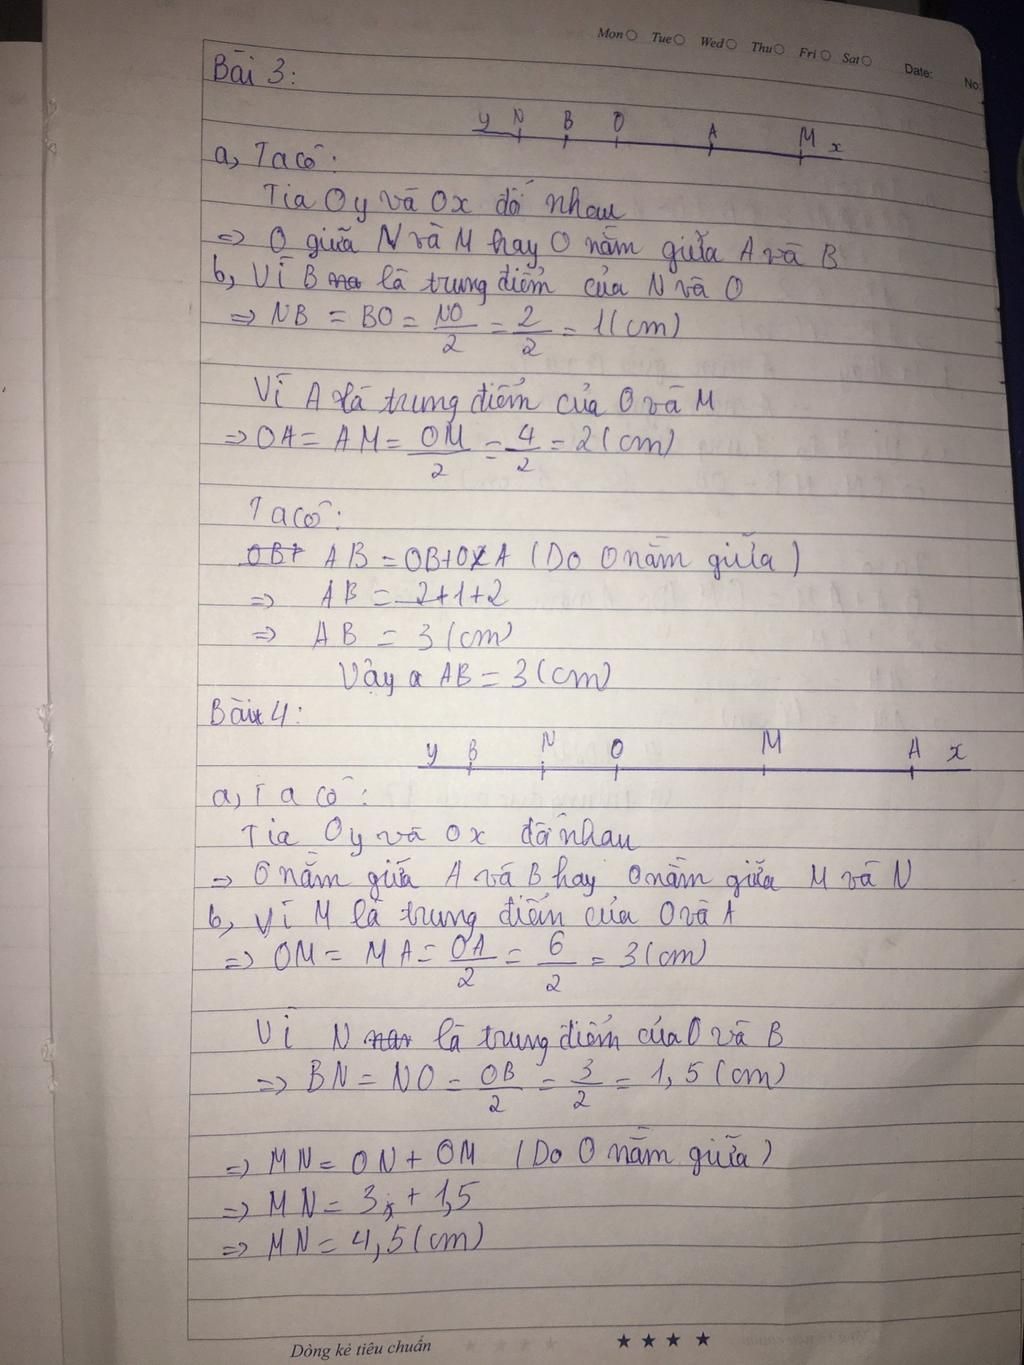 Mon Tue Wed Thu Fri Sat Date: No:
Bài 3:
y N B O A M x
a, Ta có:
Tia Oy và Ox đối nhau
=> O giữa N và M hay O nằm giữa A và B
b, Vì B là trung điểm của N và O
=> NB = BO = NO/2 = 2/2 = 1(cm)
Vì A là trung điểm của O và M
=> OA = AM = OM/2 = 4/2 = 2(cm)
Ta có:
AB = OB+OA (Do O nằm giữa)
=> AB = 2+1+2
=> AB = 3 (cm)
Vậy AB = 3(cm)
Bài 4:
y B N O M A x
a, Ta có:
Tia Oy và Ox đối nhau
=> O nằm giữa A và B hay O nằm giữa M và N
b, Vì M là trung điểm của O và A
=> OM = MA = OA/2 = 6/2 = 3(cm)
Vì N là trung điểm của O và B
=> BN = NO = OB/2 = 3/2 = 1,5 (cm)
=> MN = ON + OM (Do O nằm giữa)
=> MN = 3 + 1,5
=> MN = 4,5(cm)
Dòng kẻ tiêu chuẩn